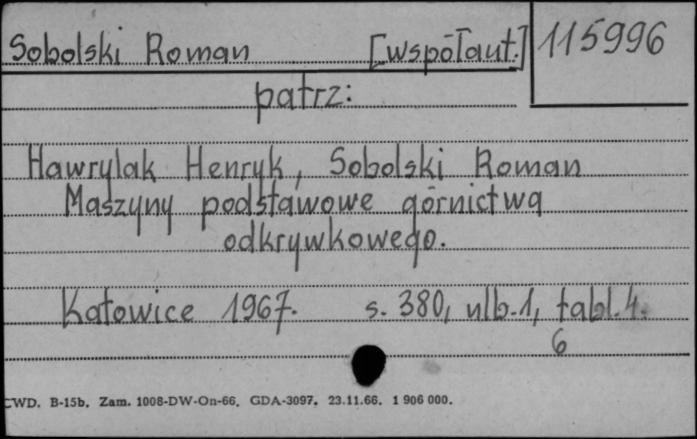 Sobolski Roman [współaut.] 115996
patrz:
Hawrylak Henryk, Sobolski Roman
Maszyny podstawowe górnictwa
odkrywkowego.
Katowice 1967. s. 380, nlb. 1, tabl. 4.
6
CWD. B-15b. Zam. 1008-DW-On-66. GDA-3097. 23.11.66. 1 906 000.